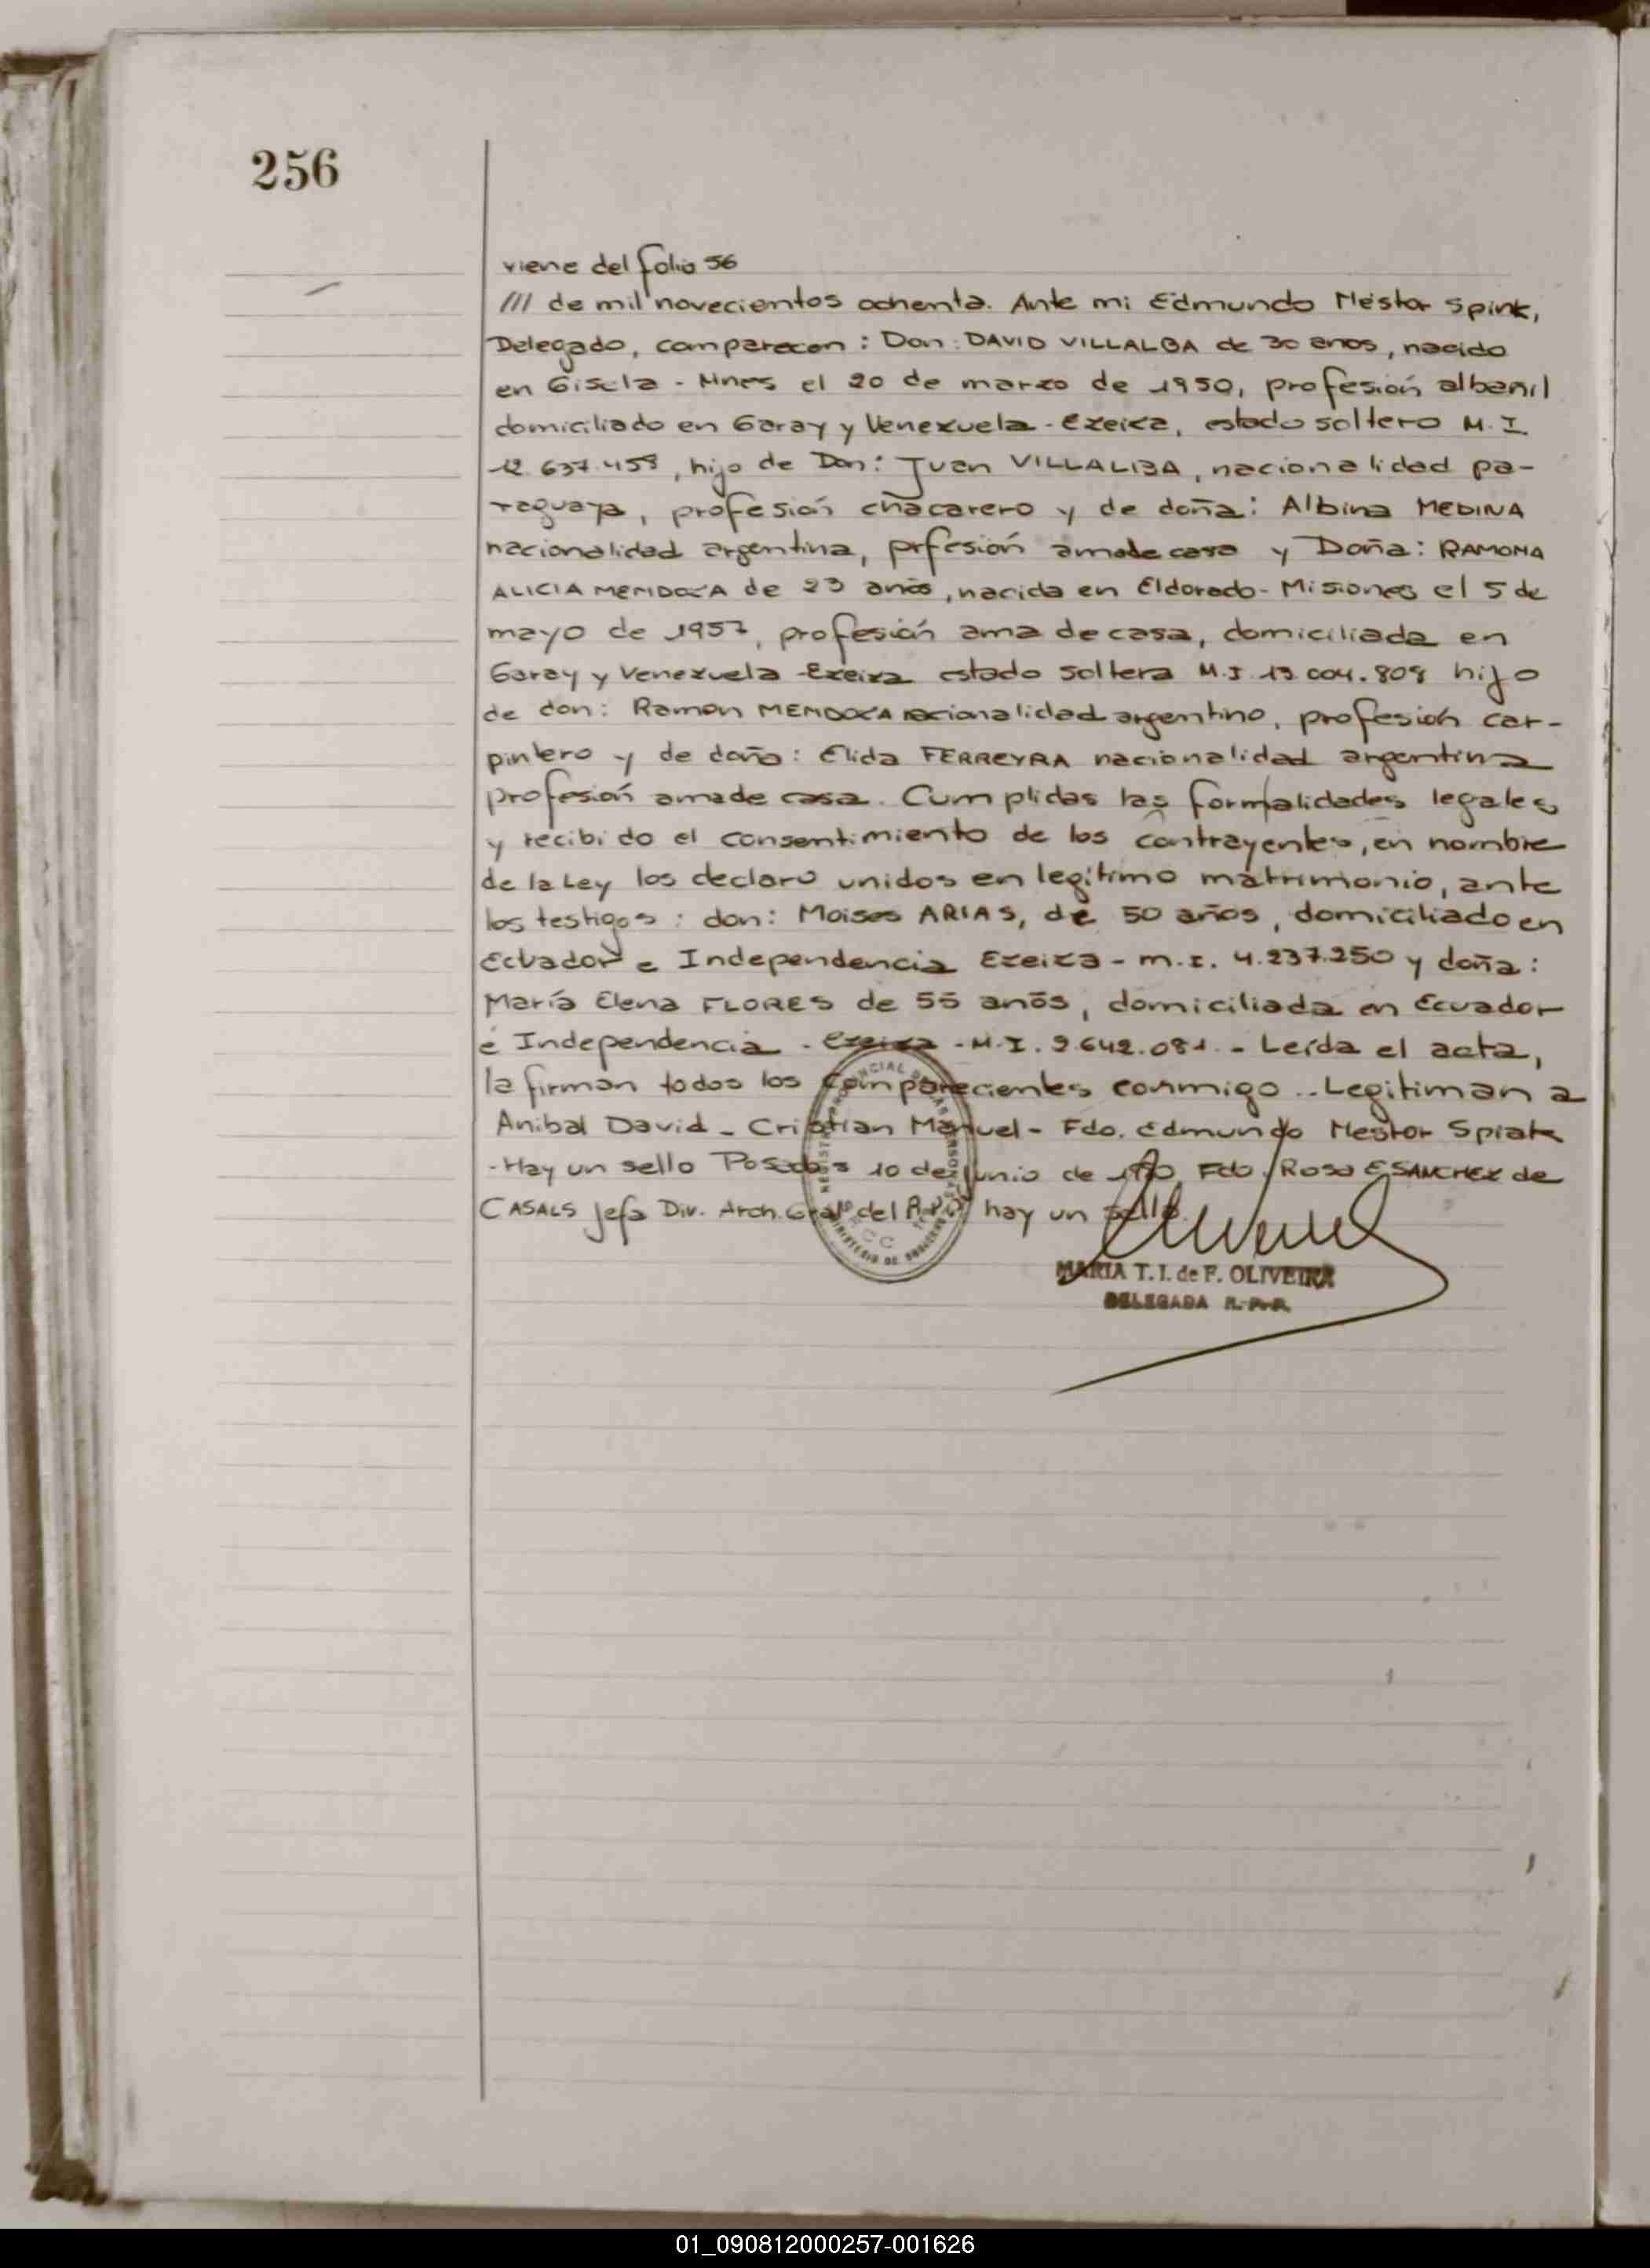 256
viene del folio 56
/// de mil novecientos ochenta. Ante mi Edmundo Néstor Spink,
Delegado, comparecen: Don: DAVID VILLALBA de 30 anos, nacido
en Gisela - Mnes el 20 de marzo de 1950, profesión albanil
domiciliado en Garay y Venezuela - Ezeiza, estado soltero M.I
12.637.458, hijo de Don: Juan VILLALBA, nacionalidad pa-
raguaya, profesión chacarero y de doña: Albina MEDINA
nacionalidad argentina, prfesión ama de casa y Doña: RAMONA
ALICIA MENDOZA de 23 anos, nacida en Eldorado - Misiones el 5 de
mayo de 1957, profesión ama de casa, domiciliada en
Garay y Venezuela - Ezeiza estado soltera M.I 13.004.808 hijo
de don: Ramon MENDOZA nacionalidad argentino, profesión car-
pintero y de doña: Elida FERREYRA nacionalidad argentina
profesión ama de casa. Cumplidas las formalidades legales
y recibido el consentimiento de los contrayentes, en nombre
de la Ley los declaro unidos en legítimo matrimonio, ante
los testigos: don: Moises ARIAS, de 50 años, domiciliado en
Ecuador e Independencia Ezeiza - m.I. 4.237.250 y doña:
María Elena FLORES de 55 anós, domiciliada en Ecuador
é Independencia - Ezeiza - M.I. 9.642.081. - Leída el acta,
la firman todos los comparecientes conmigo .. Legitiman a
Anibal David - Cristian Manuel - Fdo. Edmundo Nestor Spink
- Hay un sello Posadas 10 de Junio de 1980 Fdo. Rosa E SANCHEZ de
CASALS Jefa Div. Arch. Gral del R.P.P. hay un sello.
MARIA T. I. de F. OLIVEIRA
DELEGADA R.P.P.
01_090812000257-001626